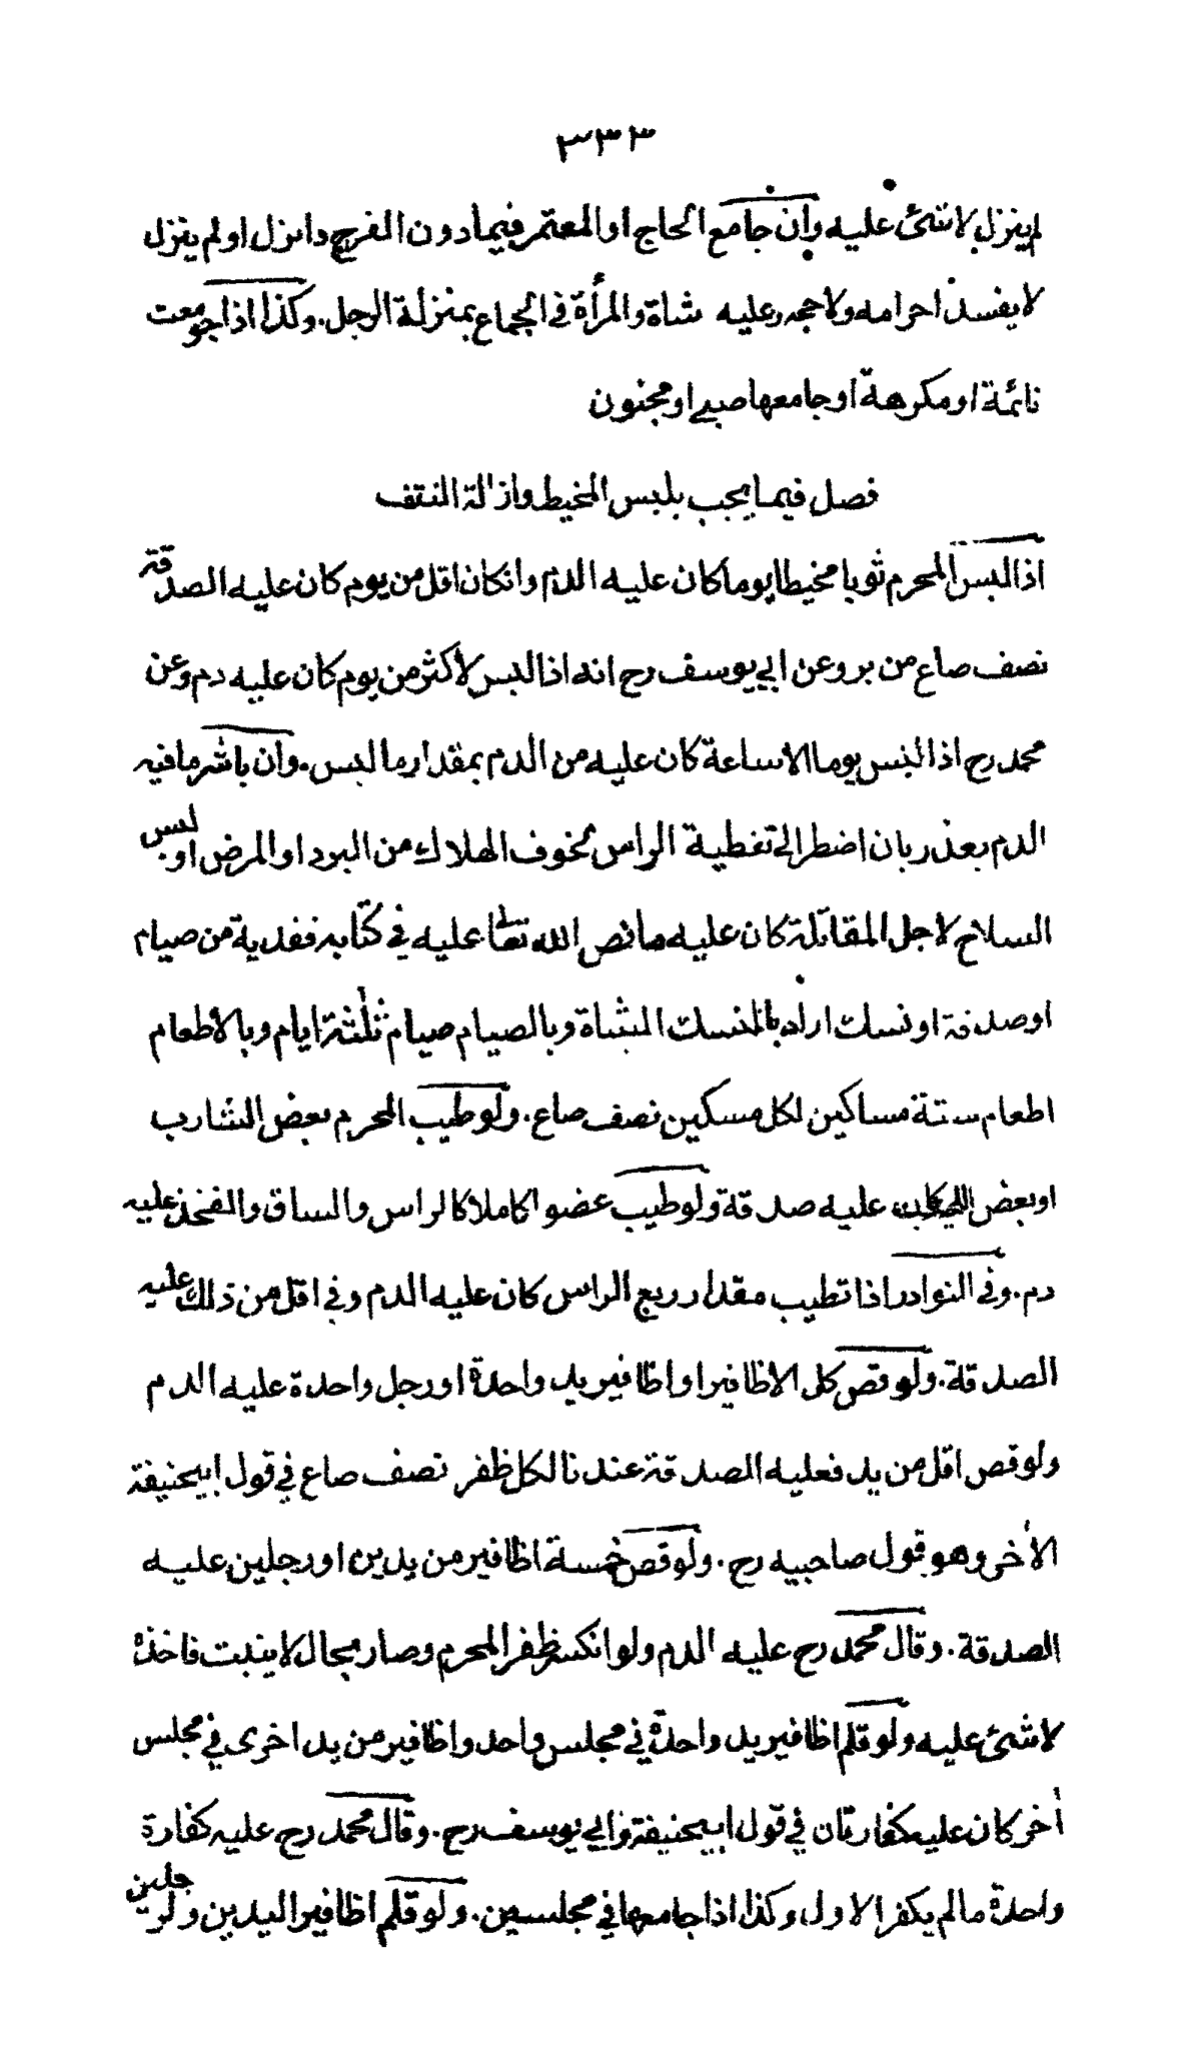 ٣٣٣
لم ينزل لا شئ عليه وان جامع الحاج او المعتمر فيما دون الفرج وانزل او لم ينزل
لا يفسد احرامه ولا حجه وعليه شاة والمرأة في الجماع بمنزلة الرجل. وكذا اذا جومعت
نائمة او مكرهة او جامعها صبي او مجنون
فصل فيما يجب بلبس المخيط وازالة التفث
اذا لبس المحرم ثوبا مخيطا يوما كان عليه الدم وانكان اقل من يوم كان عليه الصدقة
نصف صاع من بر وعن ابي يوسف رح انه اذا لبس لأكثر من يوم كان عليه دم وعن
محمد رح اذا لبس يوما الا ساعة كان عليه من الدم بمقدار ما لبس. وان باشر ما فيه
الدم بعذر بان اضطر الى تغطية الراس لخوف الهلاك من البرد او المرض او لبس
السلاح لاجل المقاتلة كان عليه ما نص الله تعالى عليه في كتابه ففدية من صيام
او صدقة او نسك اراد بالنسك الشاة وبالصيام صيام ثلثة ايام وبالاطعام
اطعام ستة مساكين لكل مسكين نصف صاع. ولو طيب المحرم بعض الشارب
او بعض اللحية كان عليه صدقة ولو طيب عضوا كاملا كالراس والساق والفخذ عليه
دم. وفي النوادر اذا تطيب مقدار ربع الراس كان عليه الدم وفي اقل من ذلك عليه
الصدقة. ولو قص كل الاظافير او اظافير يد واحدة او رجل واحدة عليه الدم
ولو قص اقل من يد فعليه الصدقة عندنا لكل ظفر نصف صاع في قول ابيحنيفة
الأخر وهو قول صاحبيه رح. ولو قص خمسة اظافير من يدين او رجلين عليه
الصدقة. وقال محمد رح عليه الدم ولو انكسر ظفر المحرم وصار بحال لا ينبت فاخذه
لا شئ عليه ولو قلم اظافير يد واحدة في مجلس واحد واظافير من يد اخرى في مجلس
أخر كان عليه كفارتان في قول ابيحنيفة وابي يوسف رح. وقال محمد رح عليه كفارة
واحدة ما لم يكفر الاول وكذا اذا جامعها في مجلسين. ولو قلم اظافير اليدين والرجلين